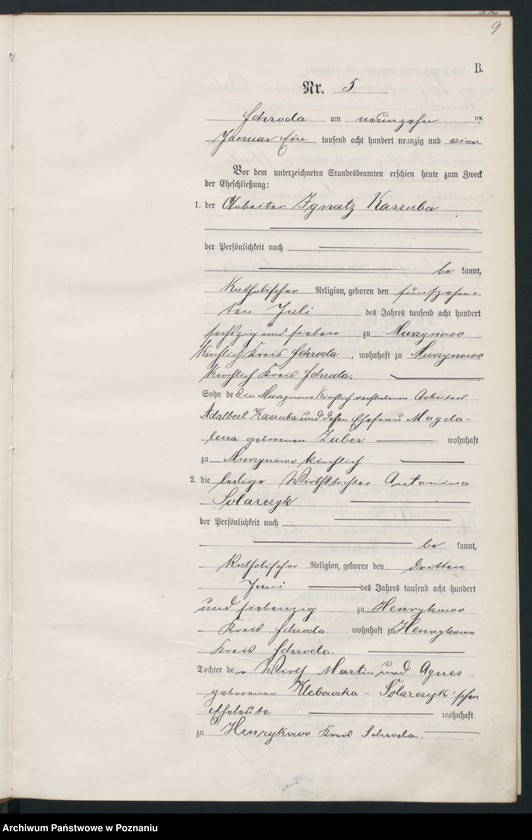 9
B.
Nr. 5
Schroda am neunzehn ten
Januar Ein tausend acht hundert neunzig und vier
Vor dem unterzeichneten Standesbeamten erschien heute zum Zweck
der Eheschließung:
1. der Arbeiter Ignatz Kassuba
der Persönlichkeit nach
be kannt,
Katholischer Religion, geboren den fünfzehn
ten Juli des Jahres tausend acht hundert
sechzig und sieben zu Murzynowo
kirchlich Kreis Schroda, wohnhaft zu Murzynowo
kirchlich Kreis Schroda.
Sohn des in Murzynowo kirchlich verstorbenen Arbeiters
Adalbert Kassuba und dessen Ehefrau Magda-
lena geborenen Zuber wohnhaft
zu Murzynowo kirchlich
2. die ledige Wirthstochter Antonina
Solarczyk
der Persönlichkeit nach
be kannt,
Katholischer Religion, geboren den dritten
Juni des Jahres tausend acht hundert
und siebenzig zu Henrykowo
Kreis Schroda, wohnhaft zu Henrykowo
Kreis Schroda.
Tochter der Wirth Martin und Agnes
geborenen Klebowska - Solarczyk'schen
Eheleute wohnhaft
zu Henrykowo Kreis Schroda.
Archiwum Państwowe w Poznaniu